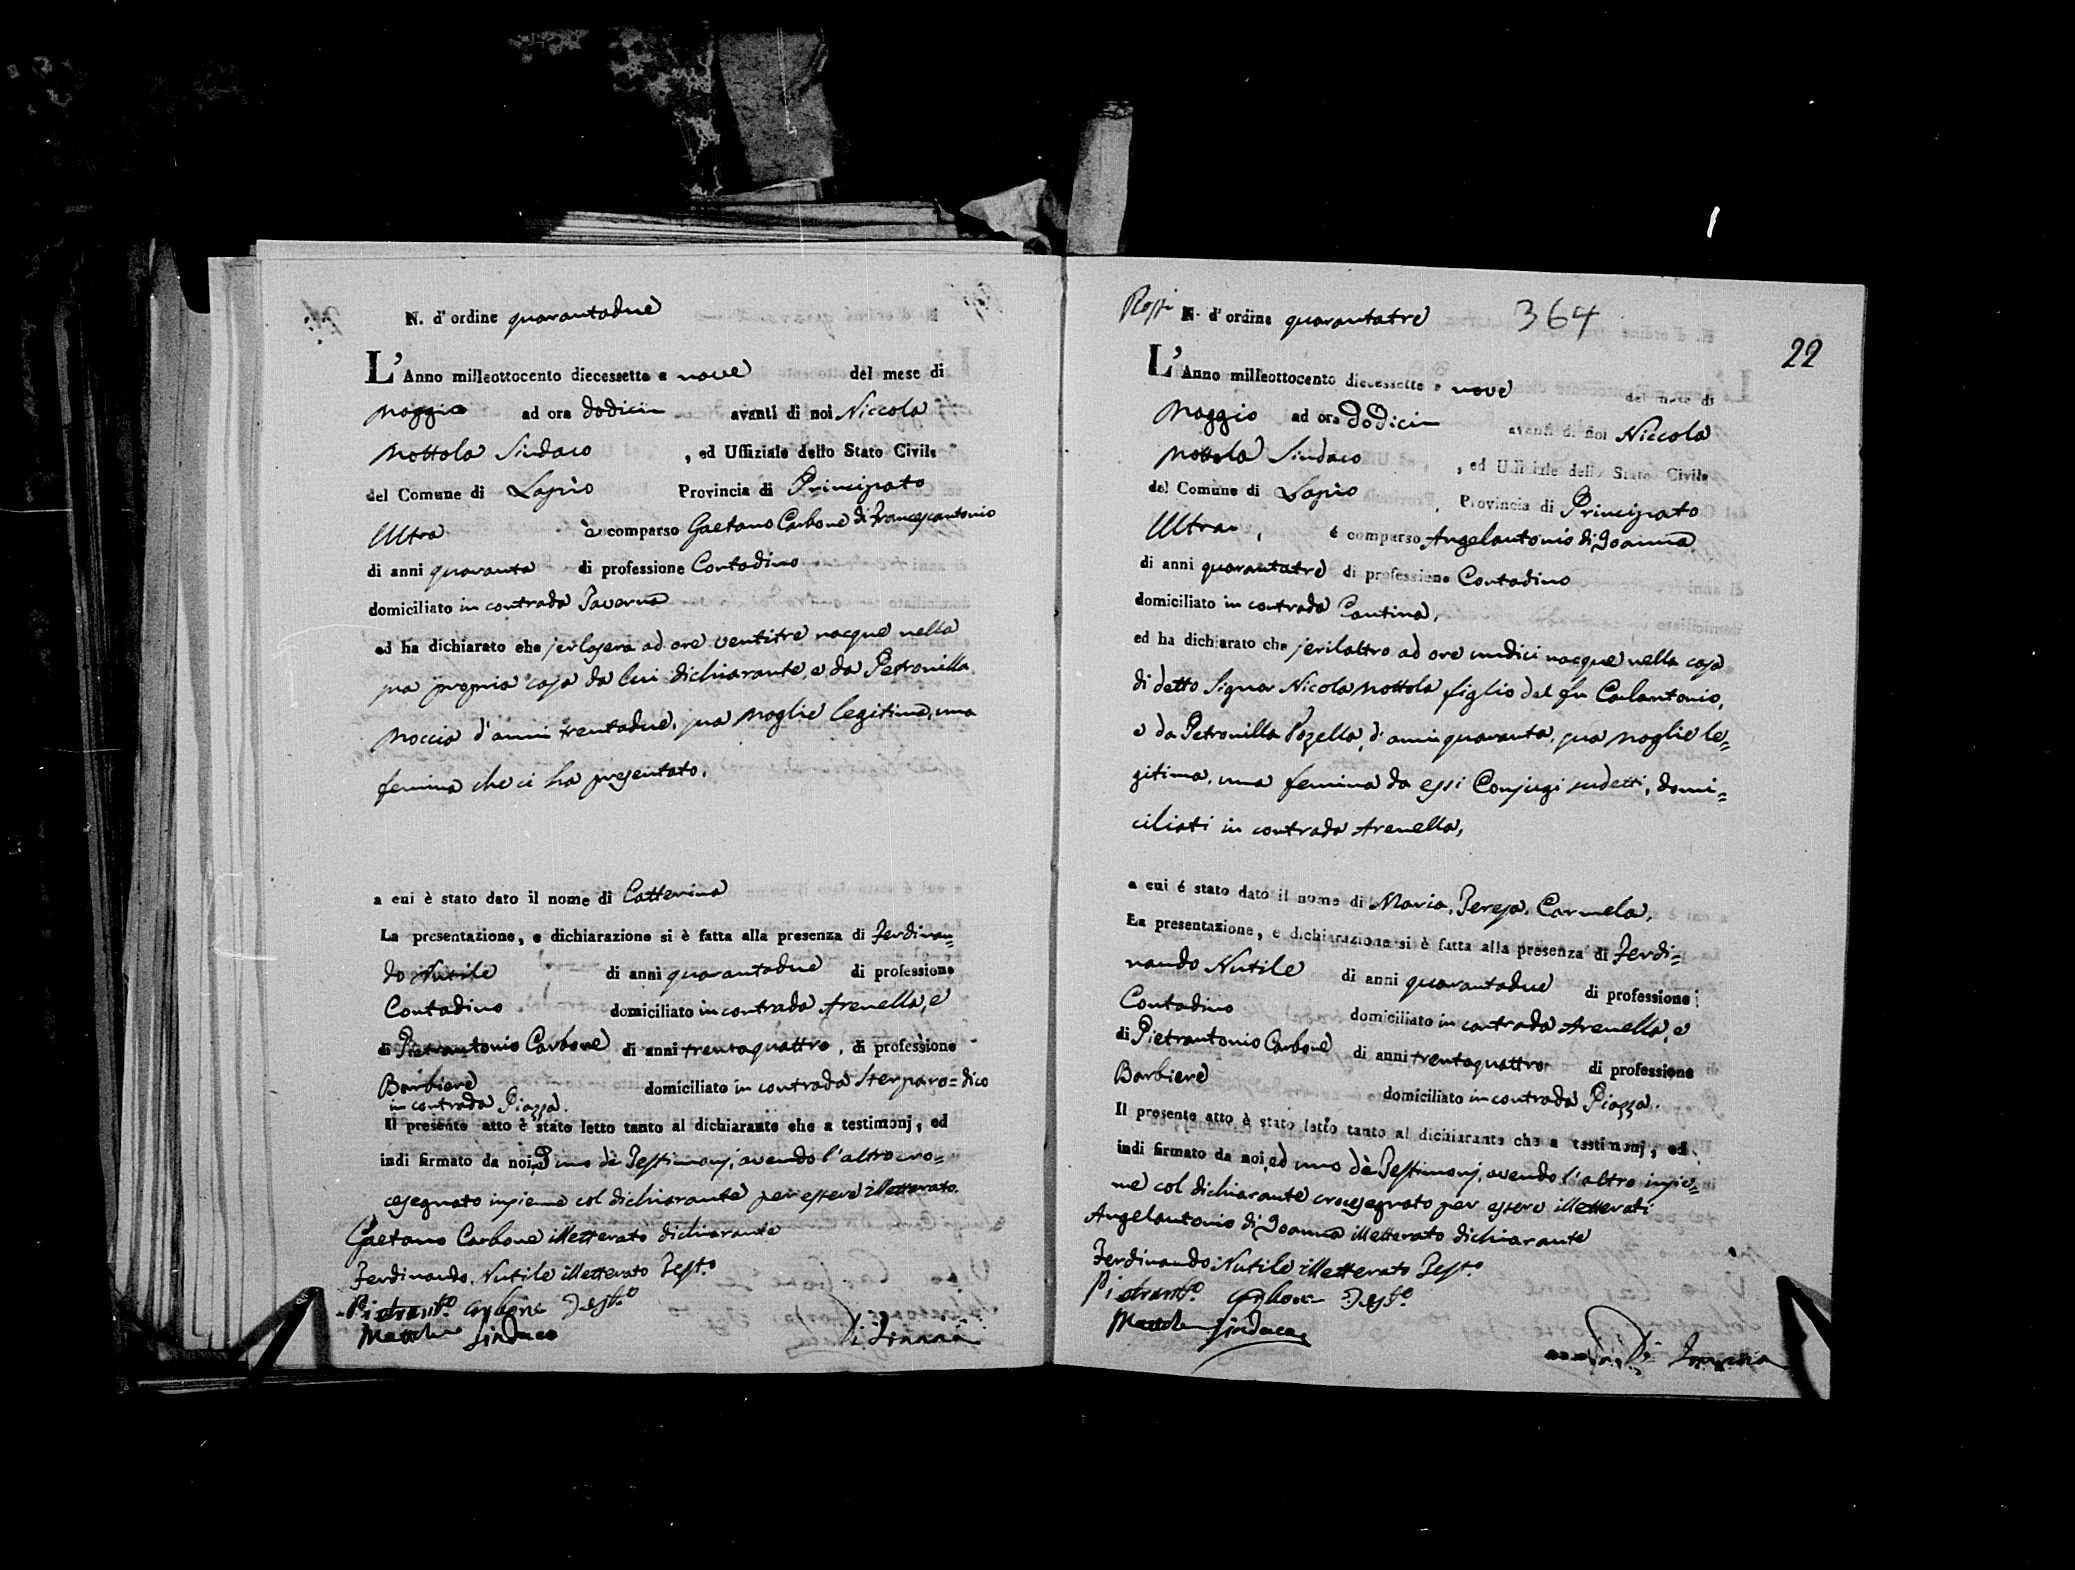 N. d'ordine quarantadue
L'Anno milleottocento diecessette a nove del mese di
Maggio ad ora dodici avanti di noi Niccola
Mottola Sindaco , ed Uffiziale dello Stato Civile
del Comune di Lapio Provincia di Principato
Ultra è comparso Gaetano Carbone di Francescantonio
di anni quaranta di professione Contadino
domiciliato in contrada Taverna
ed ha dichiarato che jerlasera ad ore ventitre nacque nella
sua propria casa da lui dichiarante, e da Petronilla
Moccia d'anni trentadue, sua Moglie legitima, una
femina che ci ha presentato.
a cui è stato dato il nome di Catterina
La presentazione, e dichiarazione si è fatta alla presenza di Ferdinan=
do Nutile di anni quarantadue di professione
Contadino domiciliato in contrada Arenella, e
di Pietrantonio Carbone di anni trentaquattro, di professione
Barbiere domiciliato in contrada Sterparo=dico
in contrada Piazza.
Il presente atto è stato letto tanto al dichiarante che a testimonj, ed
indi firmato da noi, ed uno de' Testimonj, avendo l'altro cro=
cesegnato insieme col dichiarante per essere illetterato.
Gaetano Carbone illetterato dichiarante
Ferdinando Nutile illetterato Testo.
Pietranto. Carbone Testo.
Mottola Sindaco
Di Joanna
Rossi N. d'ordine quarantatre 364
22
L'Anno milleottocento diecessette a nove del mese di
Maggio ad ora dodici avanti di noi Niccola
Mottola Sindaco , ed Uffiziale dello Stato Civile
del Comune di Lapio Provincia di Principato
Ultra, è comparso Angelantonio di Joanna
di anni quarantatre di professione Contadino
domiciliato in contrada Cantina,
ed ha dichiarato che jerilattro ad ore undici nacque nella casa
di detto Signor Nicola Mottola figlio del fu Carlantonio,
e da Petronilla Vozella, d'anni quaranta, sua Moglie le=
gitima, una femina da essi Conjugi sudetti, domi=
ciliati in contrada Arenella,
a cui é stato dato il nome di Maria, Teresa, Carmela,
La presentazione, e dichiarazione si è fatta alla presenza di Ferdi=
nando Nutile di anni quarantadue di professione
Contadino domiciliato in contrada Arenella, e
di Pietrantonio Carbone di anni trentaquattro di professione
Barbiere domiciliato in contrada Piazza.
Il presente atto è stato letto tanto al dichiarante che a testimonj, ed
indi firmato da noi, ed uno de' Testimonj, avendo l'altro insie=
me col dichiarante crocesegnato per essere illetterati
Angelantonio di Joanna illetterato dichiarante
Ferdinando Nutile illetterato Testo.
Pietranto. Carbone Testo.
Mottola Sindaco
Di Joanna